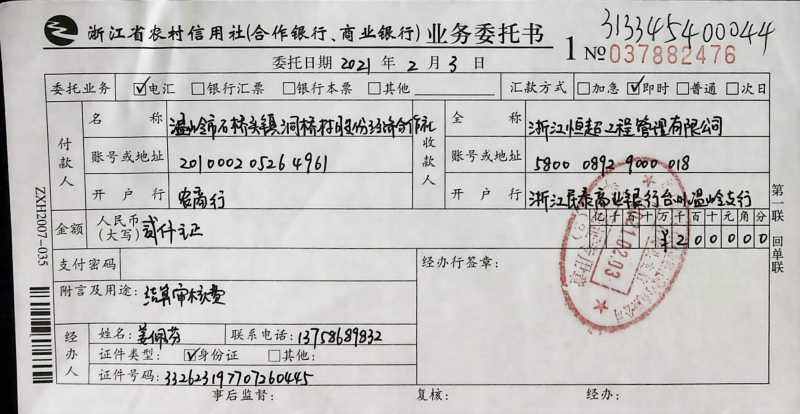 313345400044
浙江省农村信用社(合作银行、商业银行) 业务委托书
1 № 037882476
委托日期 2021 年 2 月 3 日
委托业务 ☑电汇 □银行汇票 □银行本票 □其他 汇款方式 □加急 ☑即时 □普通 □次日
付款人
名称 温岭市石桥头镇洞桥村股份经济合作社
账号或地址 201000205264961
开户行 农商行
收款人
全称 浙江恒超工程管理有限公司
账号或地址 5800 0892 9000 018
开户行 浙江民泰商业银行台州温岭支行
金额 人民币(大写) 贰仟元正
亿 千 百 十 万 千 百 十 元 角 分
¥ 2 0 0 0 0 0
支付密码
经办行签章:
附言及用途: 结算审核费
经办人
姓名: 姜佩芬 联系电话: 13758689832
证件类型: ☑身份证 □其他:
证件号码: 332623197707260445
事后监督: 复核: 经办:
第一联 回单联
ZXH2007-035
2021.02.03